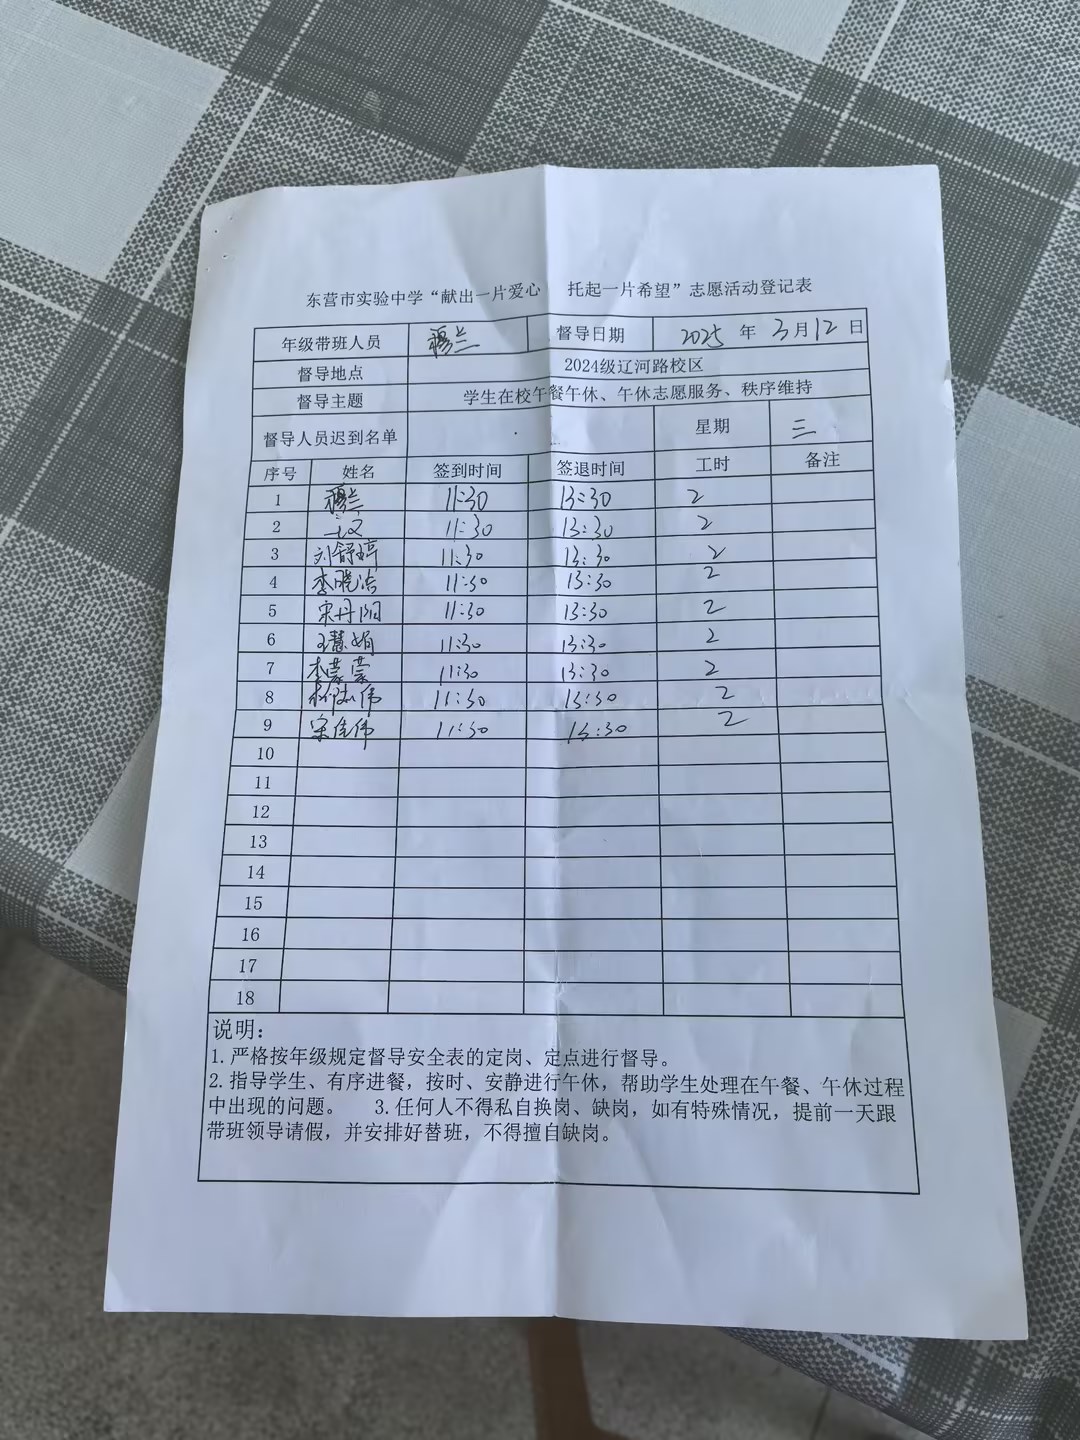 东营市实验中学“献出一片爱心 托起一片希望”志愿活动登记表
年级带班人员 穆兰 督导日期 2025 年 3月12日
督导地点 2024级辽河路校区
督导主题 学生在校午餐午休、午休志愿服务、秩序维持
督导人员迟到名单 星期 三
序号 姓名 签到时间 签退时间 工时 备注
1 穆兰 11:30 13:30 2
2 11:30 13:30 2
3 刘舒婷 11:30 13:30 2
4 李晓洁 11:30 13:30 2
5 宋丹阳 11:30 13:30 2
6 王慧娟 11:30 13:30 2
7 李蒙蒙 11:30 13:30 2
8 11:30 13:30 2
9 宋佳伟 11:30 13:30 2
10
11
12
13
14
15
16
17
18
说明:
1.严格按年级规定督导安全表的定岗、定点进行督导。
2.指导学生、有序进餐，按时、安静进行午休，帮助学生处理在午餐、午休过程
中出现的问题。 3.任何人不得私自换岗、缺岗，如有特殊情况，提前一天跟
带班领导请假，并安排好替班，不得擅自缺岗。